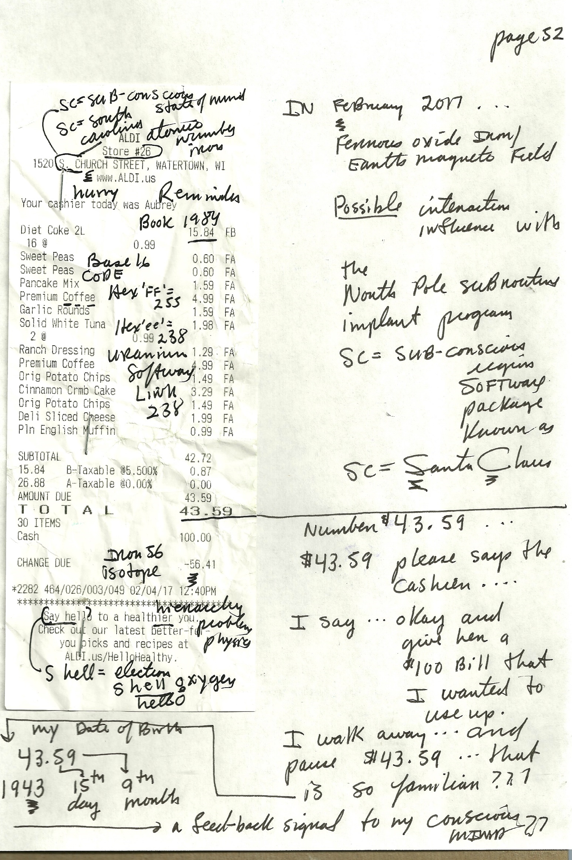 page 52
SC = SUB-CONSCIOUS
state of mind
SC = South
Carolina
atomic
number
iron
ALDI
Store #26
1520 S. CHURCH STREET, WATERTOWN, WI
www.ALDI.us
hurry Reminder
Your cashier today was Aubrey
Book 1984
Diet Coke 2L 15.84 FB
16 @ 0.99
Sweet Peas 0.60 FA
Base 16
Sweet Peas 0.60 FA
CODE
Pancake Mix 1.59 FA
Premium Coffee 4.99 FA
Hex 'FF' =
255
Garlic Rounds 1.59 FA
Solid White Tuna 1.98 FA
Hex 'ee' =
2 @ 0.99
238
Ranch Dressing 1.29 FA
uranium
Premium Coffee 4.99 FA
Software
Orig Potato Chips 1.49 FA
Cinnamon Crmb Cake 3.29 FA
Link
Orig Potato Chips 1.49 FA
238
Deli Sliced Cheese 1.99 FA
Pln English Muffin 0.99 FA
SUBTOTAL 42.72
15.84 B-Taxable @5.500% 0.87
26.88 A-Taxable @0.00% 0.00
AMOUNT DUE 43.59
TOTAL 43.59
30 ITEMS
Cash 100.00
Iron 56
isotope
CHANGE DUE -56.41
*2282 464/026/003/049 02/04/17 12:40PM
hierarchy
problem
physics
Say hello to a healthier you.
Check out our latest better-f
you picks and recipes at
ALDI.us/HelloHealthy.
S hell = election
shell oxygen
hello
my Date of Birth
43.59
1943 15th 9th
day month
a feed-back signal to my conscious
mind ??
IN February 2017 ...
Ferrous oxide Iron/
Earths magneto Field
Possible interaction
influence with
the
North Pole subroutine
implant program
SC = SUB-conscious
SOFTware
package
known as
SC = Santa Claus
Number $43.59 ...
$43.59 please says the
cashier ....
I say ... okay and
give her a
$100 Bill that
I wanted to
use up.
I walk away ... and
pause $43.59 ... that
is so familiar ???